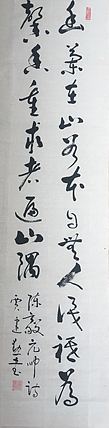 幽蘭在山谷本自無人識祇為
馨香重求者遍山隅
陳毅元帥詩